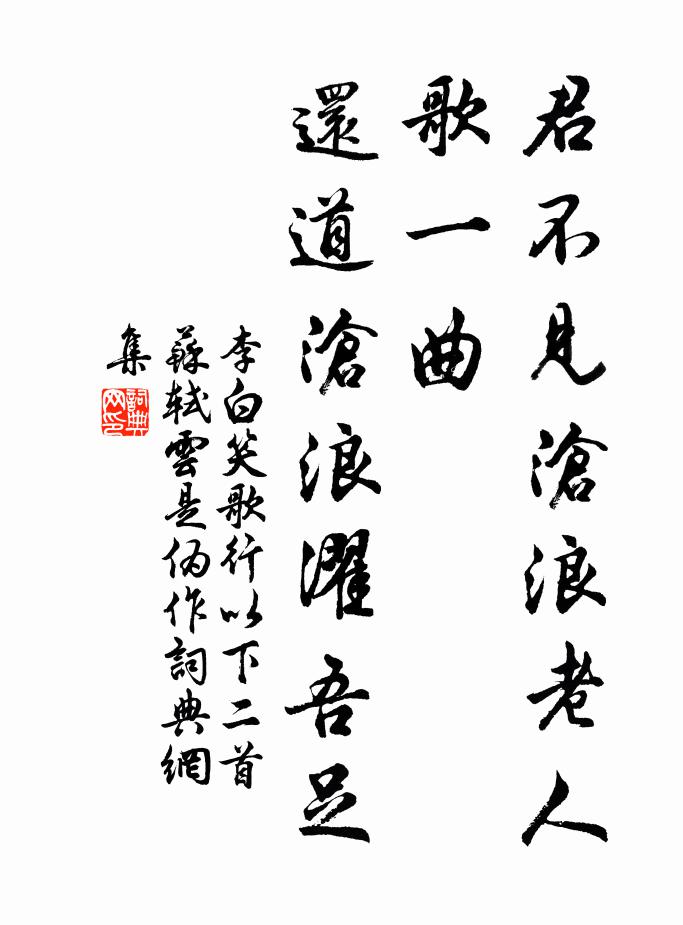 君不見滄浪老人
歌一曲
還道滄浪濯吾足
李白笑歌行以下二首
蘇軾雲是偽作詞典網
集
詞典
网印